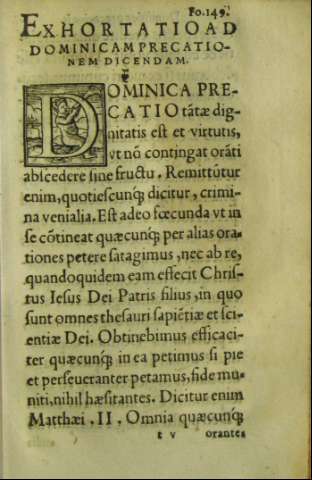 Fo.149.
EXHORTATIO AD
DOMINICAM PRECATIO-
NEM DICENDAM.
DOMINICA PRE-
CATIO tātæ dig-
nitatis est et virtutis,
vt nō contingat orāti
abscedere sine fructu. Remittūtur
enim, quotiescunq; dicitur, crimi-
na venialia. Est adeo fœcunda vt in
se cōtineat quæcunq; per alias ora-
tiones petere satagimus, nec ab re,
quandoquidem eam effecit Chris-
tus Iesus Dei Patris filius, in quo
sunt omnes thesauri sapiētiæ et sci-
entiæ Dei. Obtinebimus efficaci-
ter quæcunq; in ea petimus si pie
et perseueranter petamus, fide mu-
niti, nihil hæsitantes. Dicitur enim
Matthæi .II. Omnia quæcunq;
t v orantes